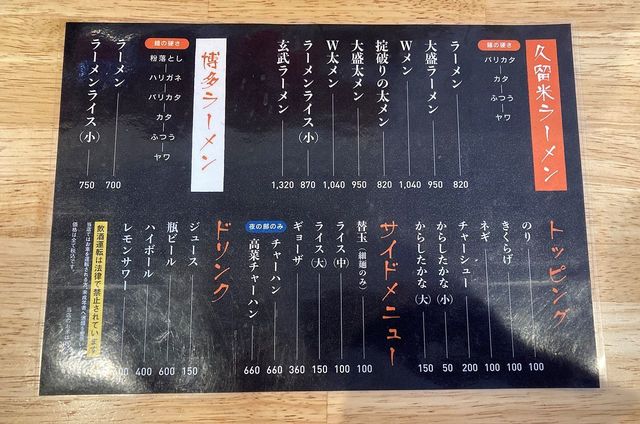 久留米ラーメン
麺の硬さ
バリカタ
カタ
ふつう
ヤワ
ラーメン 820
大盛ラーメン 950
Wメン 1,040
掟破りの太メン 820
大盛太メン 950
W太メン 1,040
ラーメンライス(小) 870
玄武ラーメン 1,320
博多ラーメン
麺の硬さ
粉落とし
ハリガネ
バリカタ
カタ
ふつう
ヤワ
ラーメン 700
ラーメンライス(小) 750
トッピング
のり 100
きくらげ 100
ネギ 100
チャーシュー 200
からしたかな(小) 50
からしたかな(大) 150
サイドメニュー
替玉(細麺のみ) 100
ライス(中) 100
ライス(大) 150
ギョーザ 360
夜の部のみ
チャーハン 660
高菜チャーハン 660
ドリンク
ジュース 150
瓶ビール 600
ハイボール 400
レモンサワー
飲酒運転は法律で禁止されています
当店ではお車を運転される方、未成年者への
価格は全て税込です。